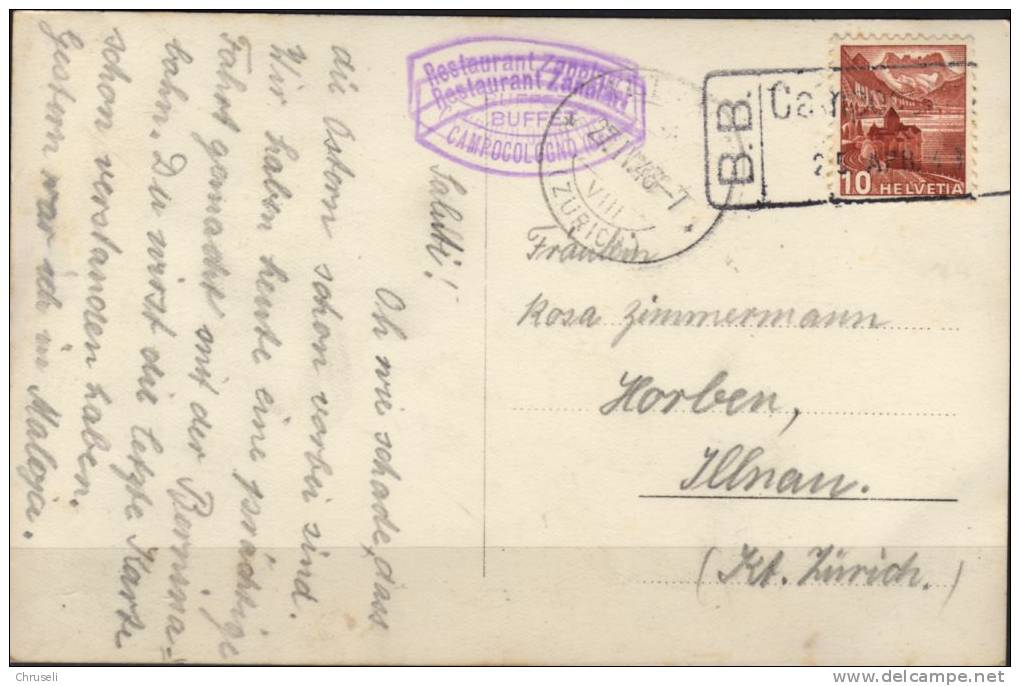 Saluti!
Oh wie schade, dass
die Ostern schon vorbei sind.
Wir haben heute eine prächtige
Fahrt gemacht mit der Bernina-
bahn. Du wirst die letzte Karte
schon verstanden haben.
Gestern war ich in Maloja.
Restaurant Zanolari
Restaurant Zanolari
BUFFET
CAMPOCOLOGNO
27.IV.43-7
VIII
(ZÜRICH)
B.B.
25 APR. 43
10 HELVETIA
Fräulein
Rosa Zimmermann
Horben,
Illnau.
(Kt. Zürich.)
Chruseli
delcampe.net